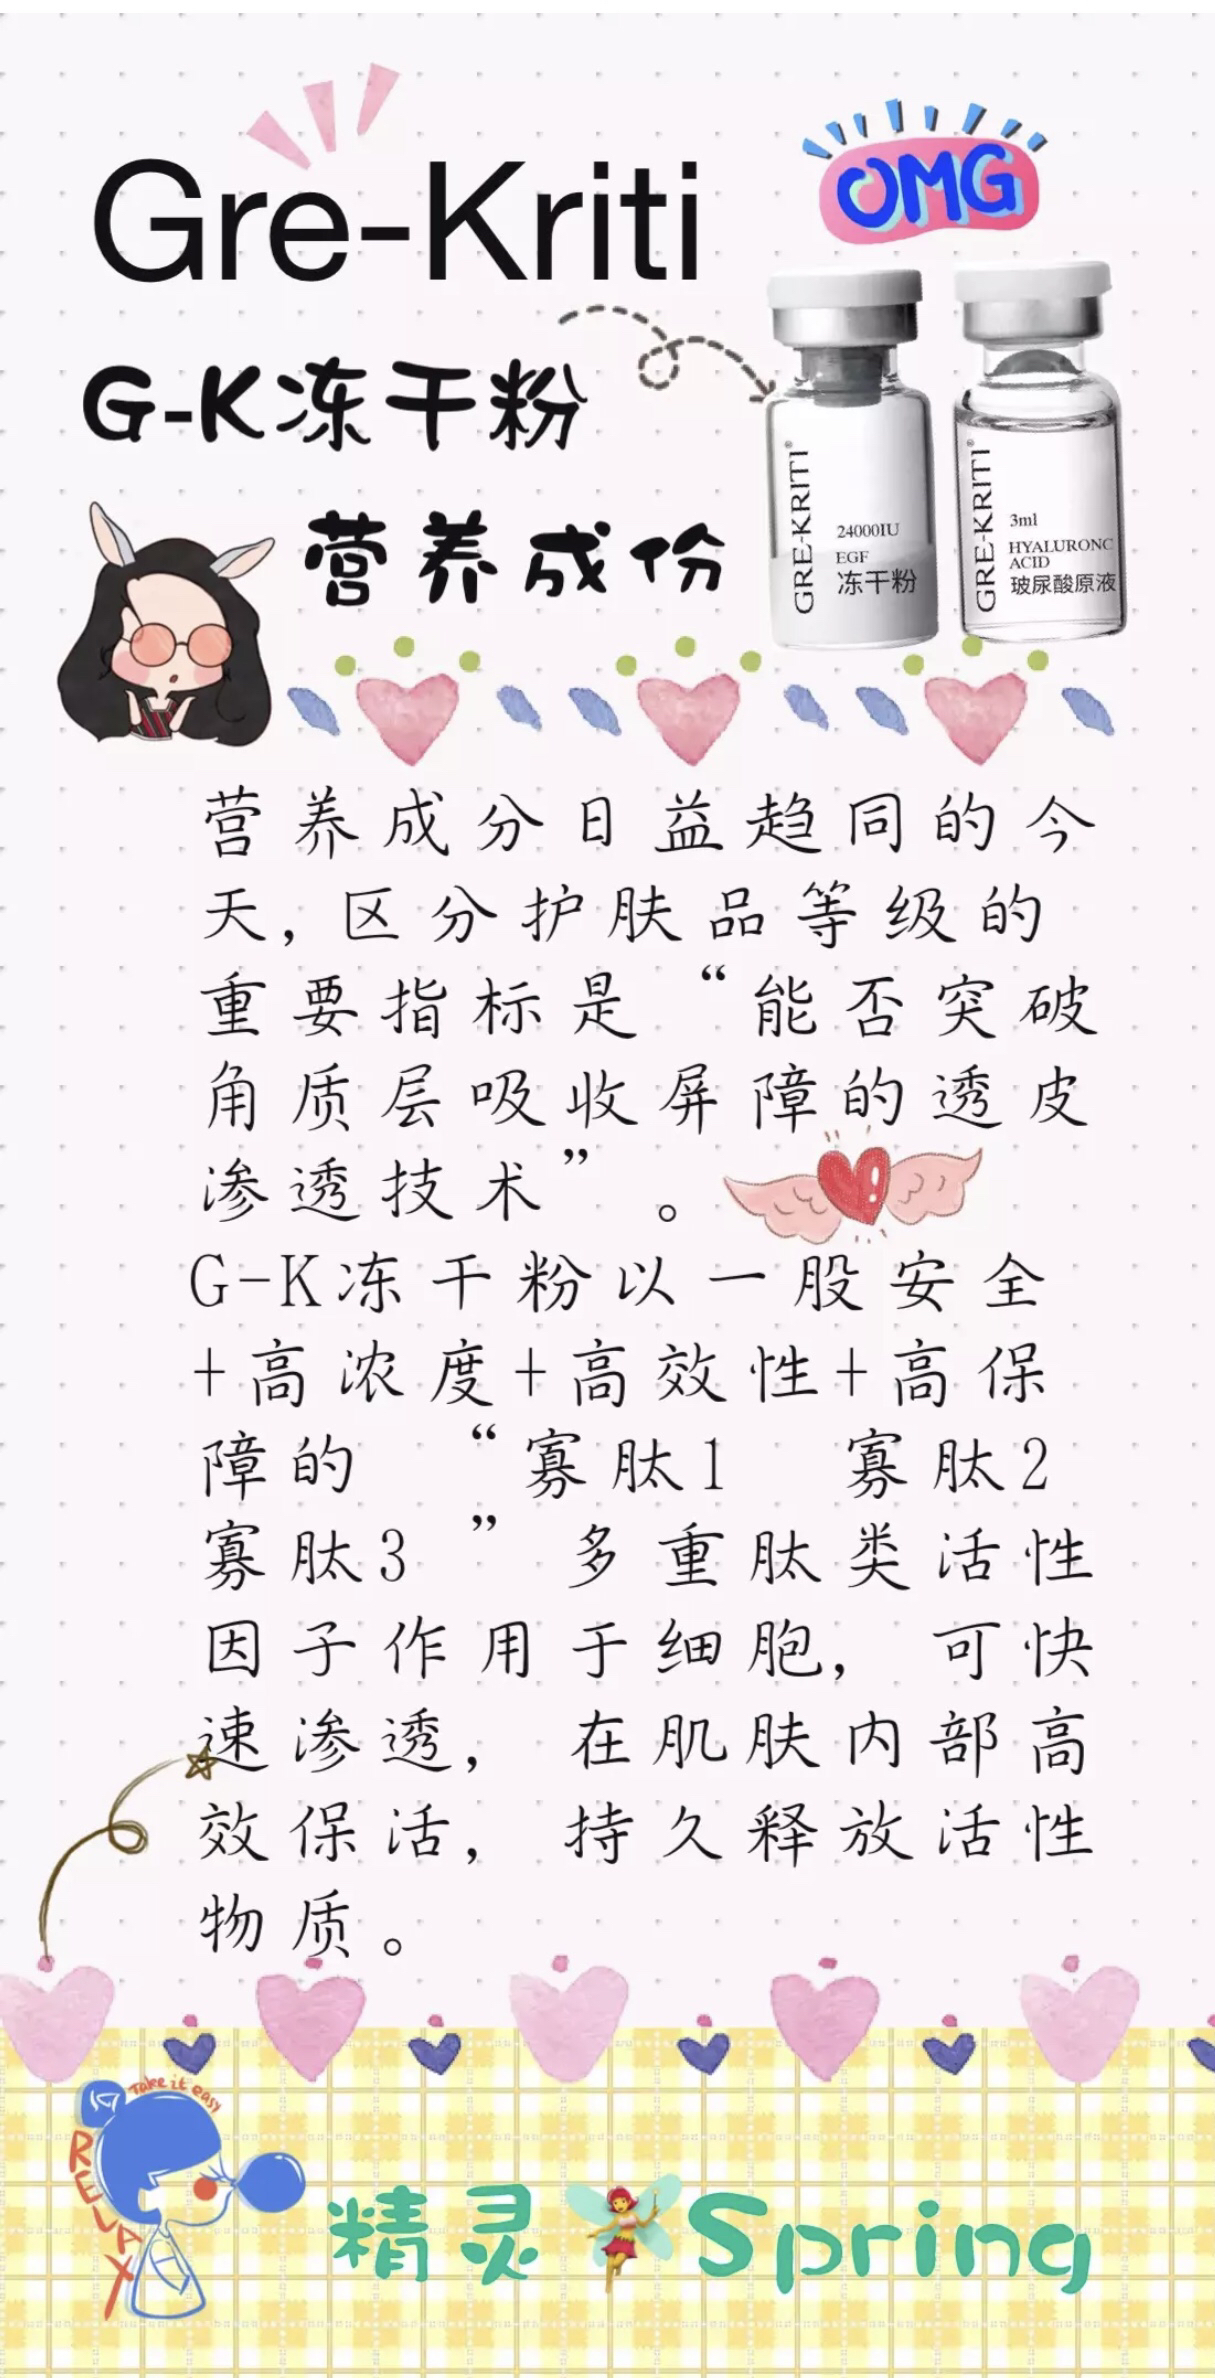 Gre-Kriti
OMG
G-K冻干粉
营养成份
GRE-KRITI®
24000IU
EGF
冻干粉
GRE-KRITI®
3ml
HYALURONC
ACID
玻尿酸原液
营养成分日益趋同的今
天,区分护肤品等级的
重要指标是“能否突破
角质层吸收屏障的透皮
渗透技术”。
G-K冻干粉以一股安全
+高浓度+高效性+高保
障的 “寡肽1 寡肽2
寡肽3 ”多重肽类活性
因子作用于细胞, 可快
速渗透, 在肌肤内部高
效保活, 持久释放活性
物质。
Take it easy
RELAX
精灵🧚Spring